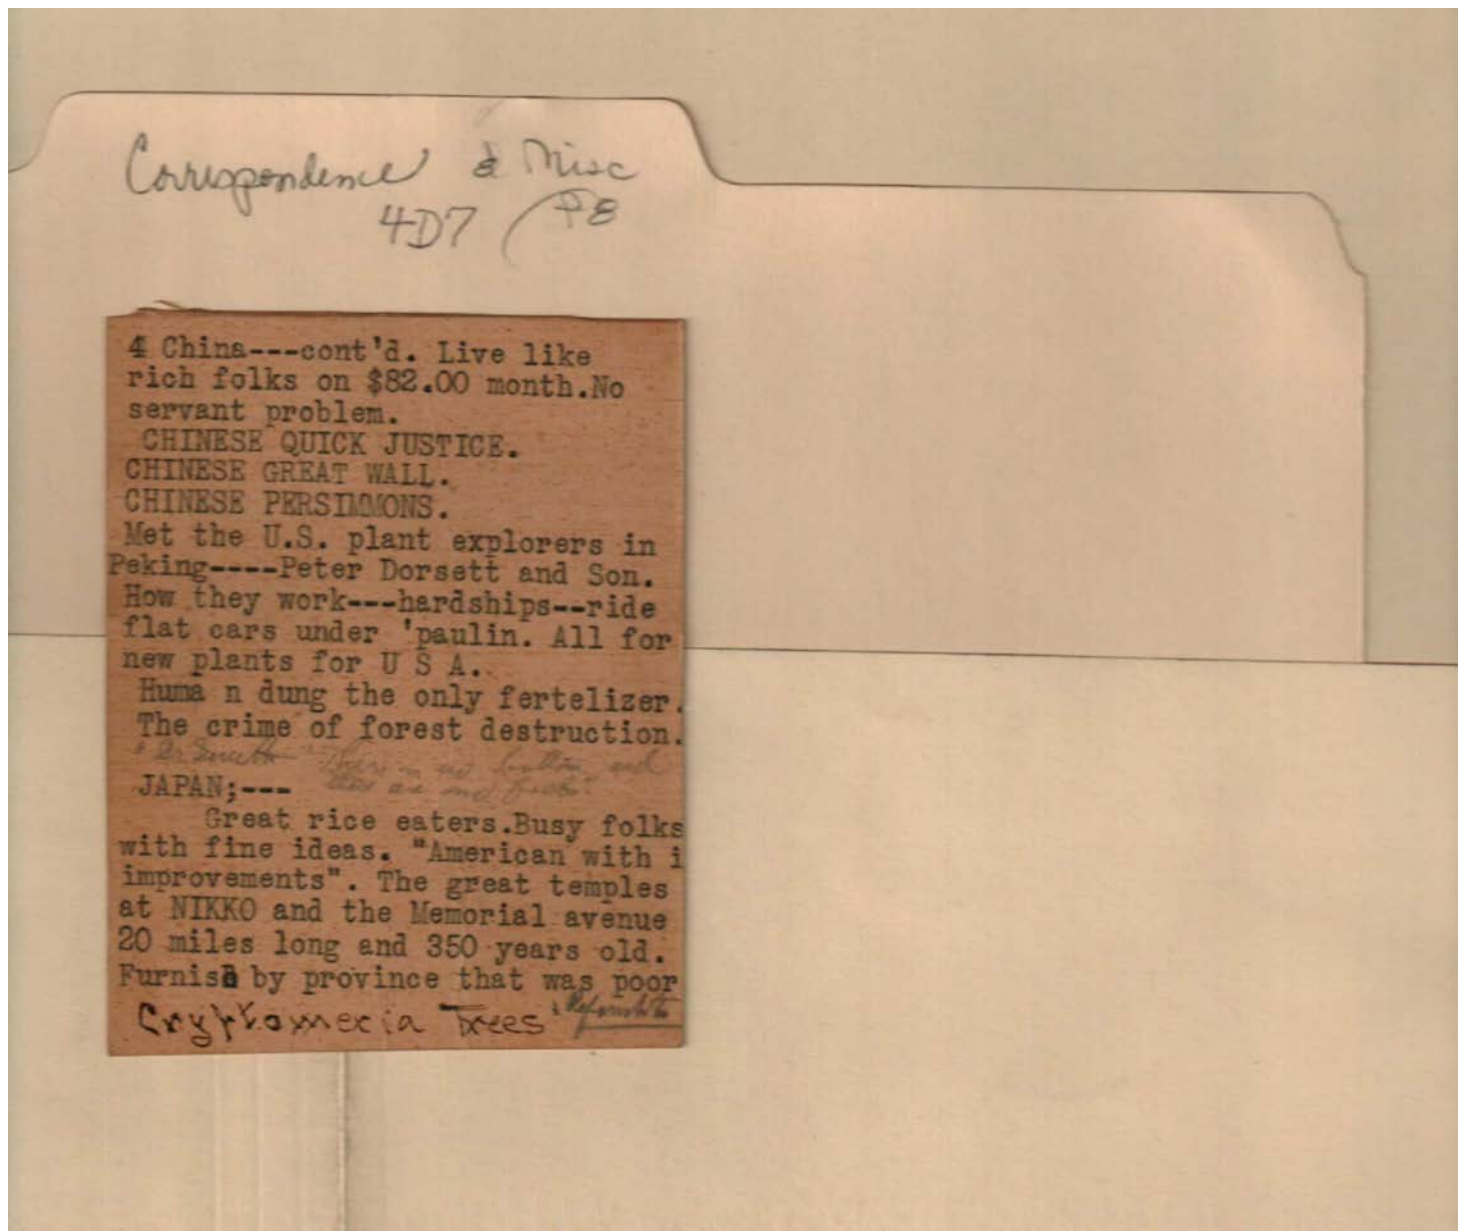 Correspondence & Misc
4D7 P8
4 China---cont'd. Live like
rich folks on $82.00 month.No
servant problem.
CHINESE QUICK JUSTICE.
CHINESE GREAT WALL.
CHINESE PERSIMMONS.
Met the U.S. plant explorers in
Peking----Peter Dorsett and Son.
How they work---hardships--ride
flat cars under 'paulin. All for
new plants for U S A.
Huma n dung the only fertelizer.
The crime of forest destruction.
no button and
JAPAN;---
there are
Great rice eaters.Busy folks
with fine ideas. "American with i
improvements". The great temples
at NIKKO and the Memorial avenue
20 miles long and 350 years old.
Furnish by province that was poor
Cryptomeria Trees